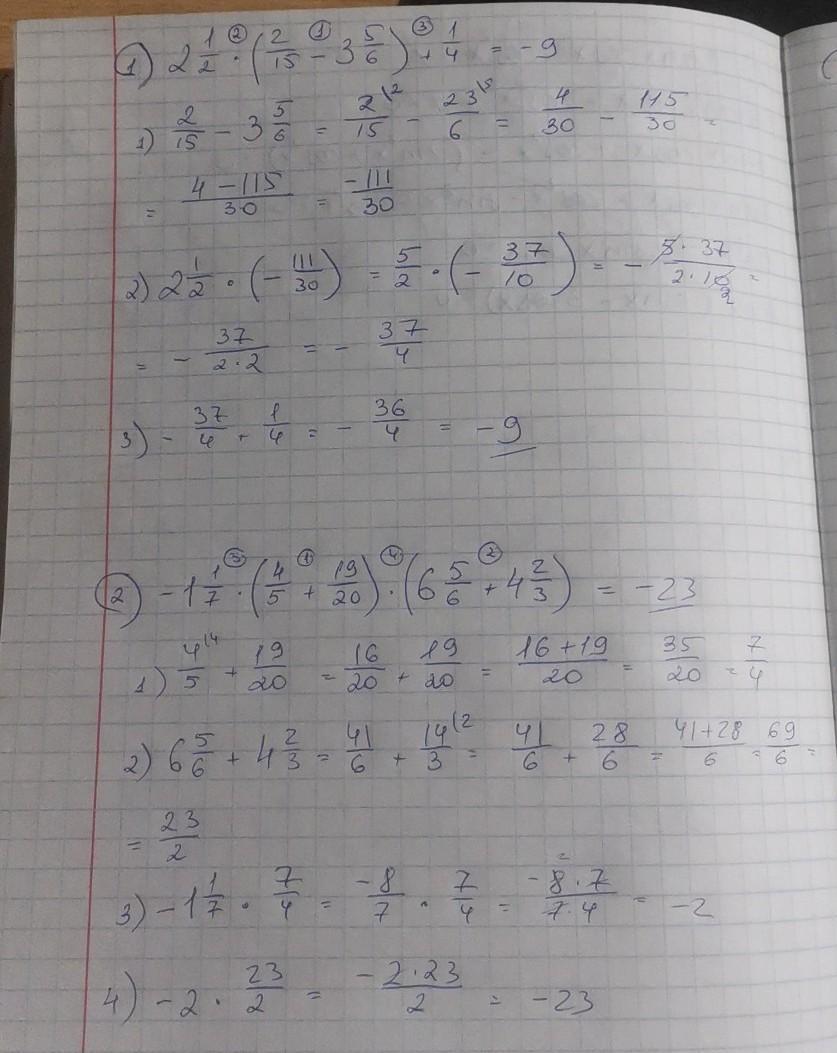 1) 2 1/2 ② · (2/15 ① - 3 5/6) ③ + 1/4 = -9
1) 2/15 - 3 5/6 = 2\2/15 - 23\5/6 = 4/30 - 115/30 =
= 4-115/30 = -111/30
2) 2 1/2 · (- 111/30) = 5/2 · (- 37/10) = - 5·37/2·10 2 =
= - 37/2·2 = - 37/4
3) - 37/4 + 1/4 = - 36/4 = -9
2) -1 1/7 ③ · (4/5 ① + 19/20) ④ · (6 5/6 ② + 4 2/3) = -23
1) 4\4/5 + 19/20 = 16/20 + 19/20 = 16+19/20 = 35/20 = 7/4
2) 6 5/6 + 4 2/3 = 41/6 + 14\2/3 = 41/6 + 28/6 = 41+28/6 = 69/6 =
= 23/2
3) -1 1/7 · 7/4 = -8/7 · 7/4 = -8 2·7/7·4 = -2
4) -2 · 23/2 = -2·23/2 = -23